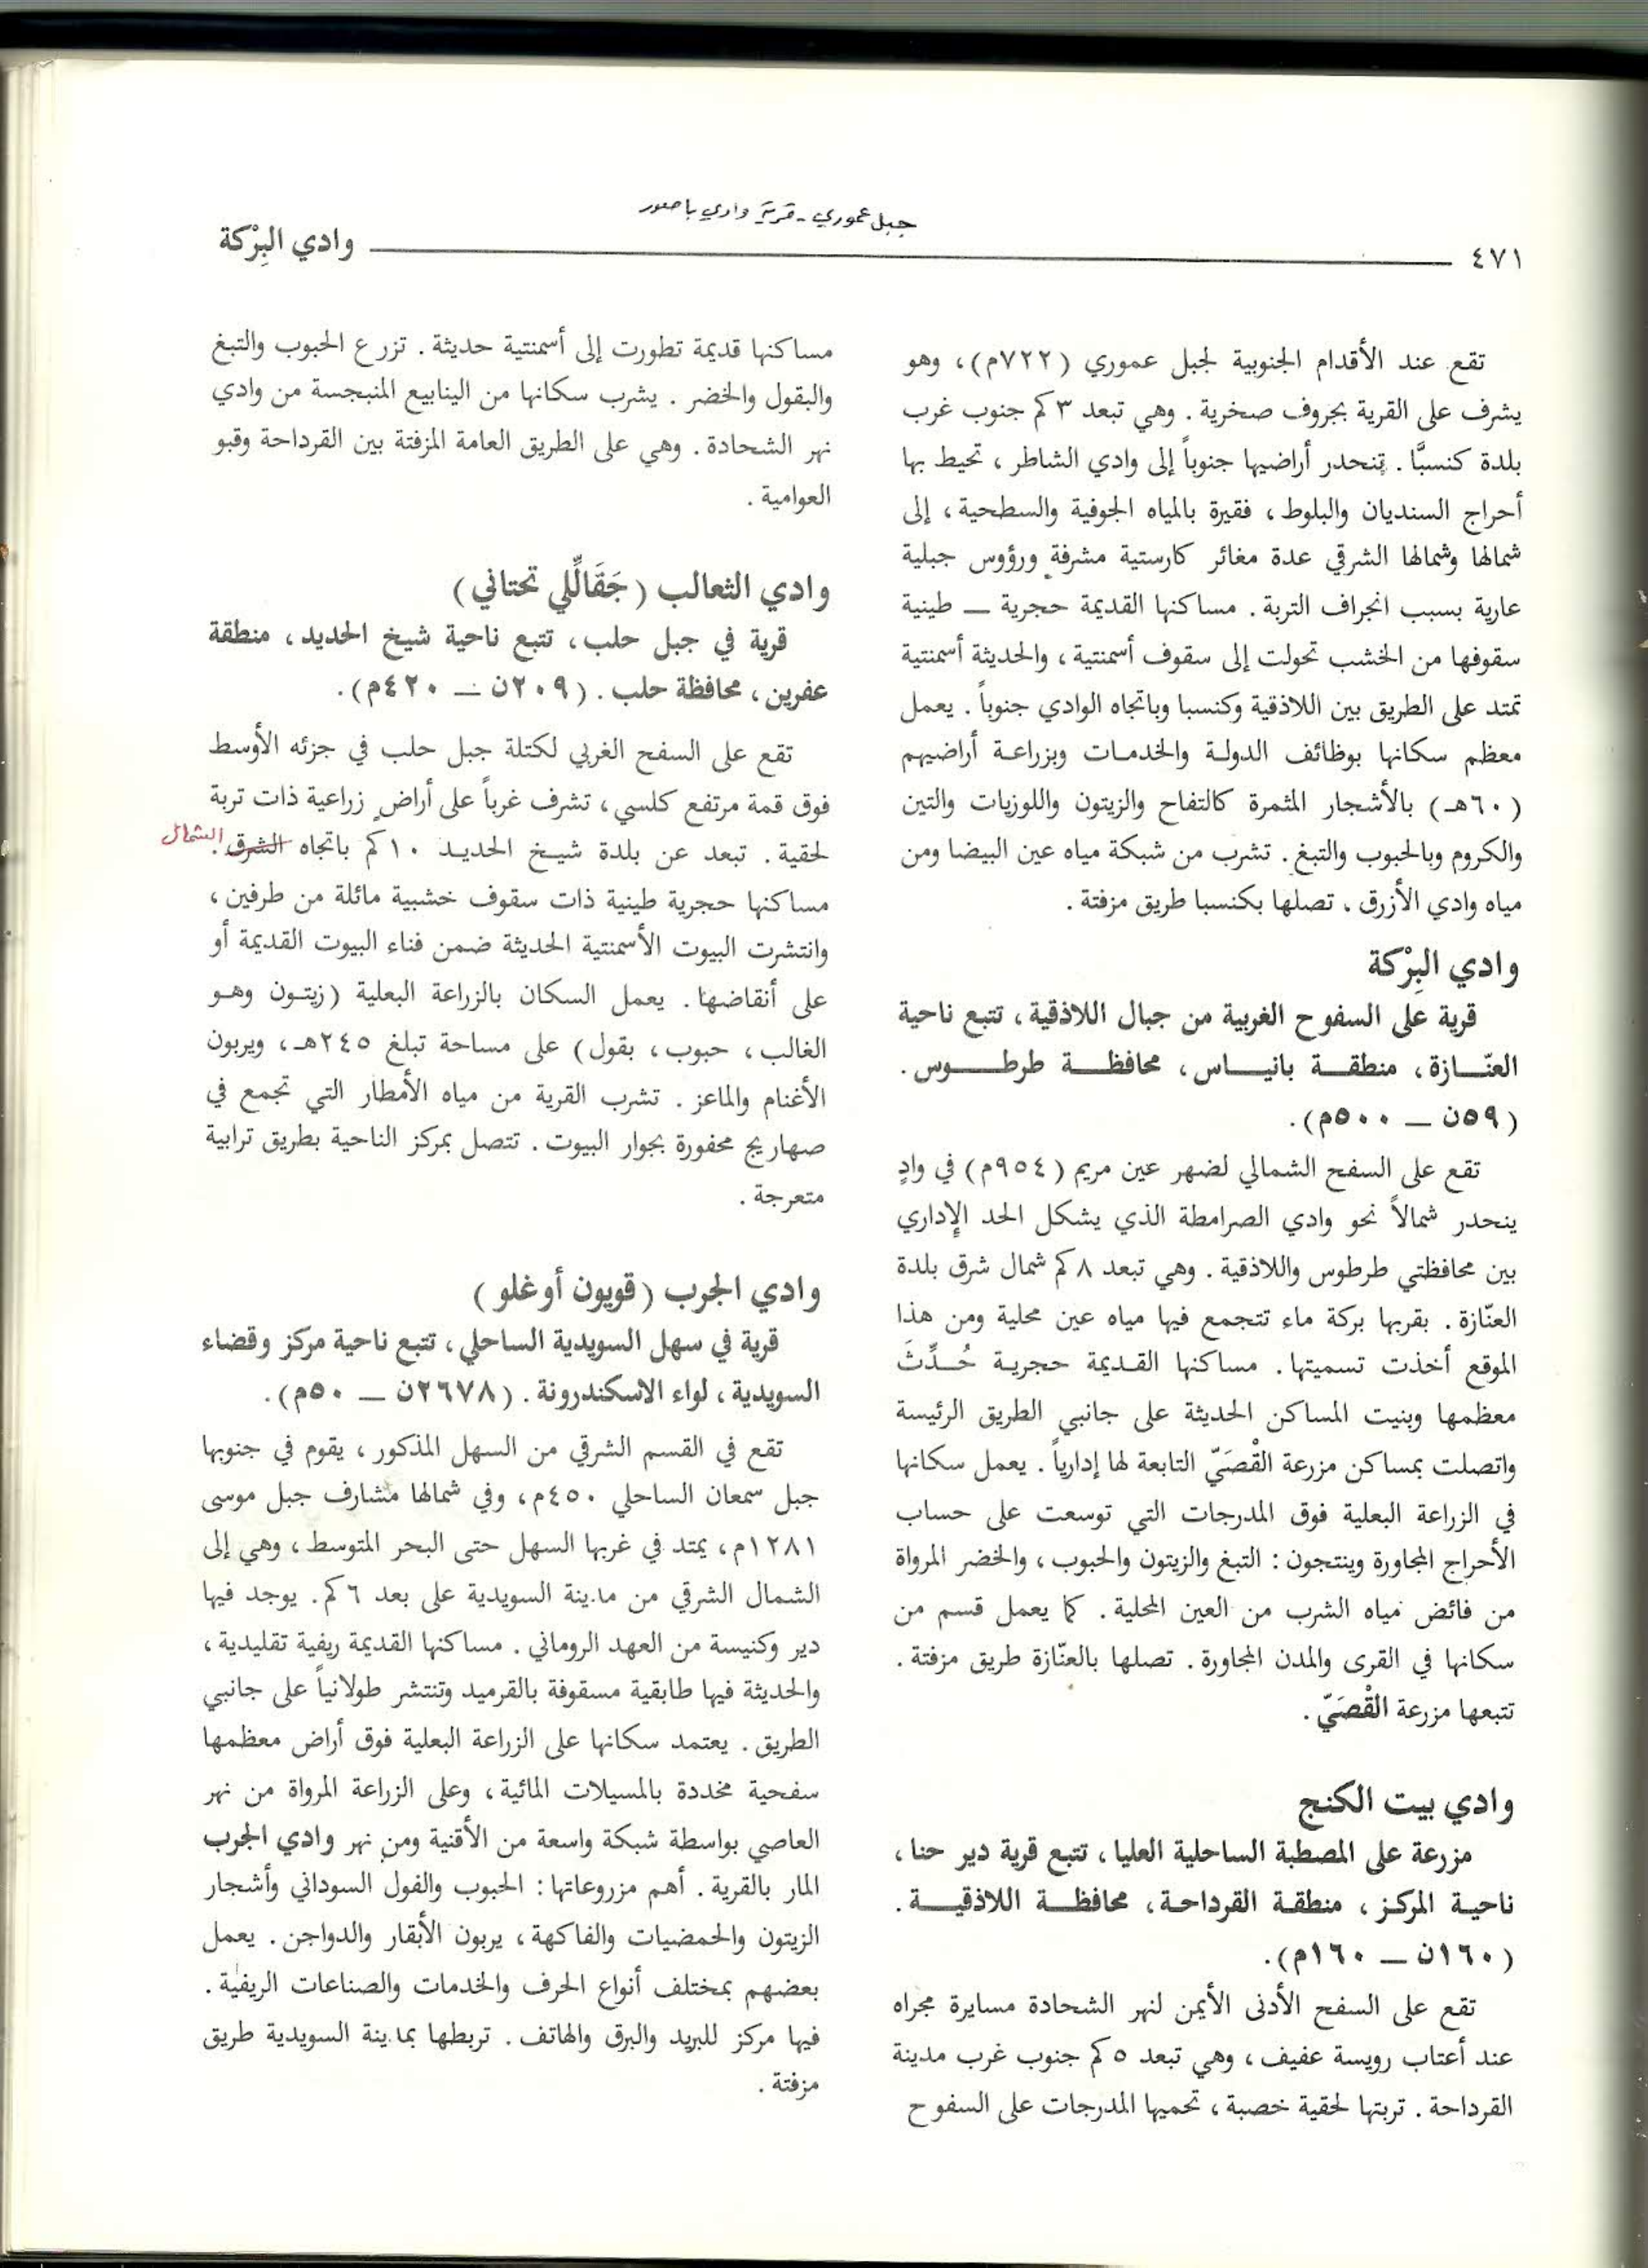 جبل عموري - قرية وادي باصور
٤٧١ وادي البِرْكة
تقع عند الأقدام الجنوبية لجبل عموري (٧٢٢م)، وهو
يشرف على القرية بجروف صخرية. وهي تبعد ٣ كم جنوب غرب
بلدة كنسبَّا. تنحدر أراضيها جنوباً إلى وادي الشاطر، تحيط بها
أحراج السنديان والبلوط، فقيرة بالمياه الجوفية والسطحية، إلى
شمالها وشمالها الشرقي عدة مغائر كارستية مشرفة ورؤوس جبلية
عارية بسبب انجراف التربة. مساكنها القديمة حجرية — طينية
سقوفها من الخشب تحولت إلى سقوف أسمنتية، والحديثة أسمنتية
تمتد على الطريق بين اللاذقية وكنسبا وباتجاه الوادي جنوباً. يعمل
معظم سكانها بوظائف الدولة والخدمات وبزراعة أراضيهم
(٦٠هـ) بالأشجار المثمرة كالتفاح والزيتون واللوزيات والتين
والكروم وبالحبوب والتبغ. تشرب من شبكة مياه عين البيضا ومن
مياه وادي الأزرق، تصلها بكنسبا طريق مزفتة.
وادي البِرْكة
قرية على السفوح الغربية من جبال اللاذقية، تتبع ناحية
العنّازة، منطقة بانياس، محافظة طرطوس.
(٥٩ن — ٥٠٠م).
تقع على السفح الشمالي لضهر عين مريم (٩٥٤م) في وادٍ
ينحدر شمالاً نحو وادي الصرامطة الذي يشكل الحد الإداري
بين محافظتي طرطوس واللاذقية. وهي تبعد ٨ كم شمال شرق بلدة
العنّازة. بقربها بركة ماء تتجمع فيها مياه عين محلية ومن هذا
الموقع أخذت تسميتها. مساكنها القديمة حجرية حُدِّثَ
معظمها وبنيت المساكن الحديثة على جانبي الطريق الرئيسة
واتصلت بمساكن مزرعة القْصَيّ التابعة لها إدارياً. يعمل سكانها
في الزراعة البعلية فوق المدرجات التي توسعت على حساب
الأحراج المجاورة وينتجون: التبغ والزيتون والحبوب، والخضر المرواة
من فائض مياه الشرب من العين المحلية. كما يعمل قسم من
سكانها في القرى والمدن المجاورة. تصلها بالعنّازة طريق مزفتة.
تتبعها مزرعة القْصَيّ.
وادي بيت الكنج
مزرعة على المصطبة الساحلية العليا، تتبع قرية دير حنا،
ناحية المركز، منطقة القرداحة، محافظة اللاذقية.
(١٦٠ن — ١٦٠م).
تقع على السفح الأدنى الأيمن لنهر الشحادة مسايرة مجراه
عند أعتاب رويسة عفيف، وهي تبعد ٥ كم جنوب غرب مدينة
القرداحة. تربتها لحقية خصبة، تحميها المدرجات على السفوح
مساكنها قديمة تطورت إلى أسمنتية حديثة. تزرع الحبوب والتبغ
والبقول والخضر. يشرب سكانها من الينابيع المنبجسة من وادي
نهر الشحادة. وهي على الطريق العامة المزفتة بين القرداحة وقبو
العوامية.
وادي الثعالب (جَقَالِّلي تحتاني)
قرية في جبل حلب، تتبع ناحية شيخ الحديد، منطقة
عفرين، محافظة حلب. (٢٠٩ن — ٤٢٠م).
تقع على السفح الغربي لكتلة جبل حلب في جزئه الأوسط
فوق قمة مرتفع كلسي، تشرف غرباً على أراضٍ زراعية ذات تربة
لحقية. تبعد عن بلدة شيخ الحديد ١٠ كم باتجاه الشرق. الشمال
مساكنها حجرية طينية ذات سقوف خشبية مائلة من طرفين،
وانتشرت البيوت الأسمنتية الحديثة ضمن فناء البيوت القديمة أو
على أنقاضها. يعمل السكان بالزراعة البعلية (زيتون وهو
الغالب، حبوب، بقول) على مساحة تبلغ ٢٤٥هـ، ويربون
الأغنام والماعز. تشرب القرية من مياه الأمطار التي تجمع في
صهاريج محفورة بجوار البيوت. تتصل بمركز الناحية بطريق ترابية
متعرجة.
وادي الجرب (قويون أوغلو)
قرية في سهل السويدية الساحلي، تتبع ناحية مركز وقضاء
السويدية، لواء الاسكندرونة. (٢٦٧٨ن — ٥٠م).
تقع في القسم الشرقي من السهل المذكور، يقوم في جنوبها
جبل سمعان الساحلي ٤٥٠م، وفي شمالها مشارف جبل موسى
١٢٨١م، يمتد في غربها السهل حتى البحر المتوسط، وهي إلى
الشمال الشرقي من مدينة السويدية على بعد ٦ كم. يوجد فيها
دير وكنيسة من العهد الروماني. مساكنها القديمة ريفية تقليدية،
والحديثة فيها طابقية مسقوفة بالقرميد وتنتشر طولانياً على جانبي
الطريق. يعتمد سكانها على الزراعة البعلية فوق أراض معظمها
سفحية مخددة بالمسيلات المائية، وعلى الزراعة المرواة من نهر
العاصي بواسطة شبكة واسعة من الأقنية ومن نهر وادي الجرب
المار بالقرية. أهم مزروعاتها: الحبوب والفول السوداني وأشجار
الزيتون والحمضيات والفاكهة، يربون الأبقار والدواجن. يعمل
بعضهم بمختلف أنواع الحرف والخدمات والصناعات الريفية.
فيها مركز للبريد والبرق والهاتف. تربطها بمدينة السويدية طريق
مزفتة.